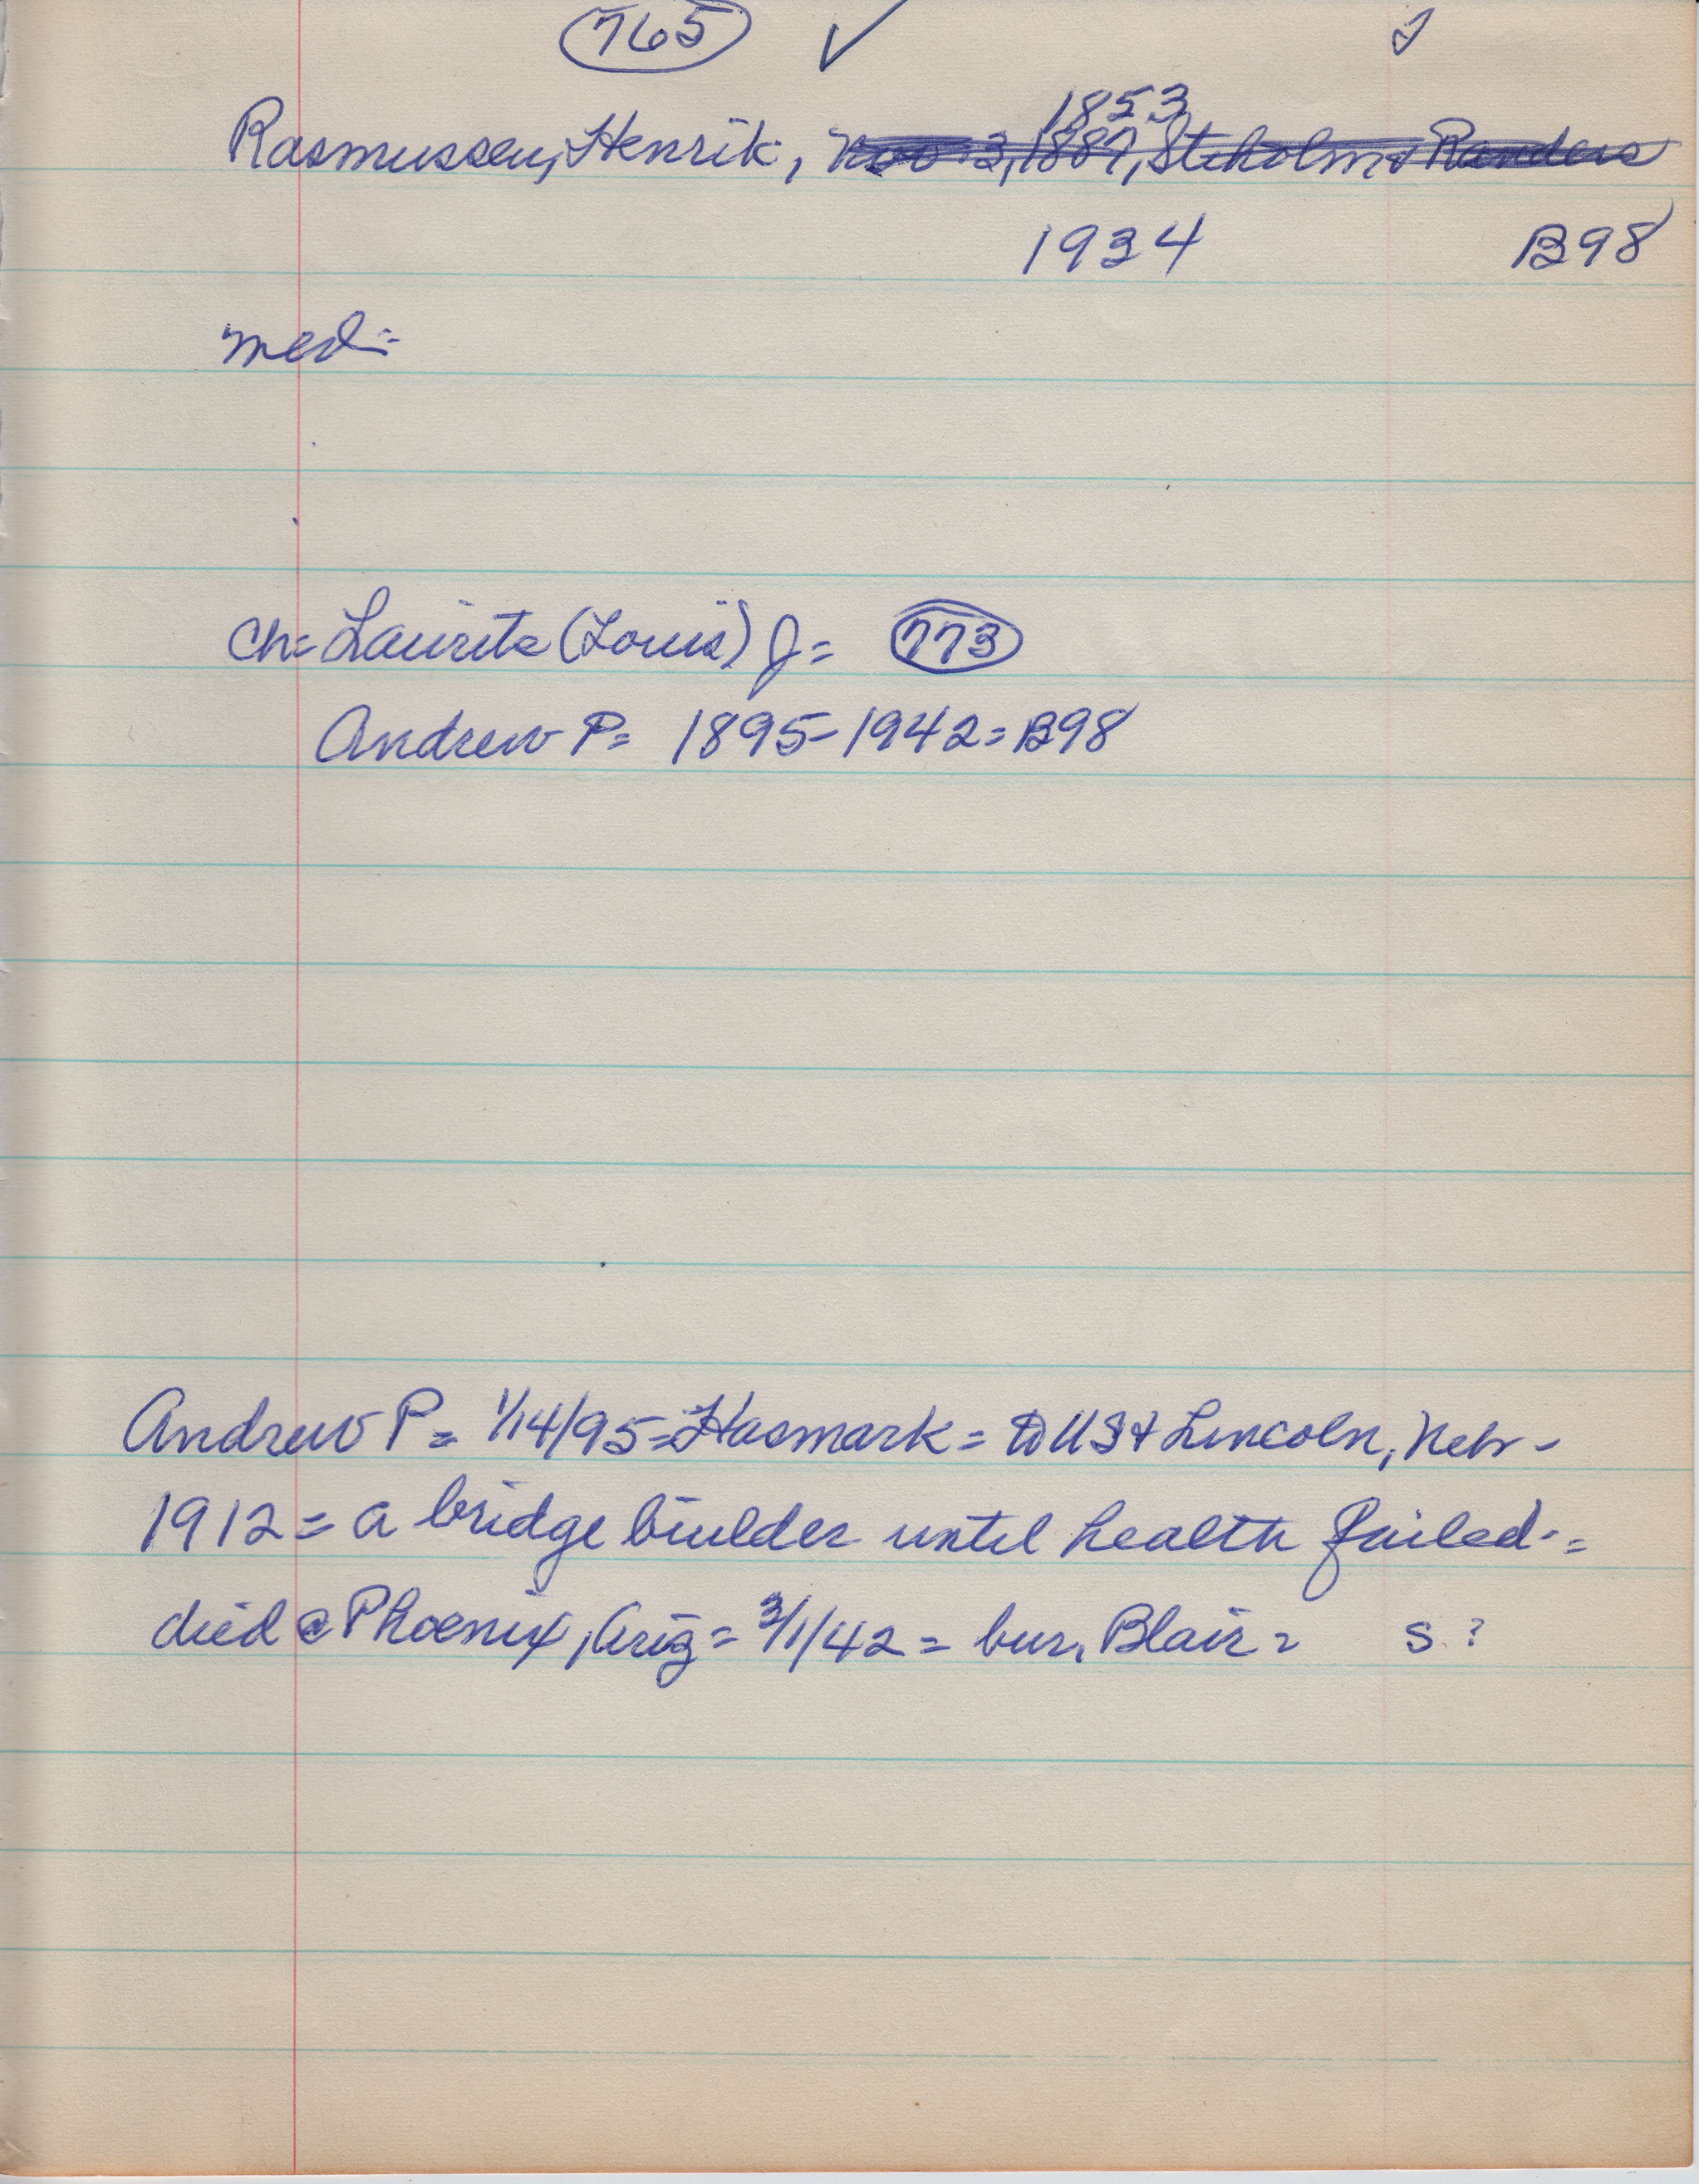 765 ✓
1853
Rasmussen, Henrik, Nov 3, 1887, Steholm, Randers
1934 B98
med:-
ch= Lauritz (Louis) J= 773
Andrew P= 1895-1942= B98
Andrew P= 1/14/95= Hasmark= to US & Lincoln, Nebr-
1912= a bridge builder until health failed-=
died @ Phoenix, Ariz= 3/1/42= bur. Blair= s.?